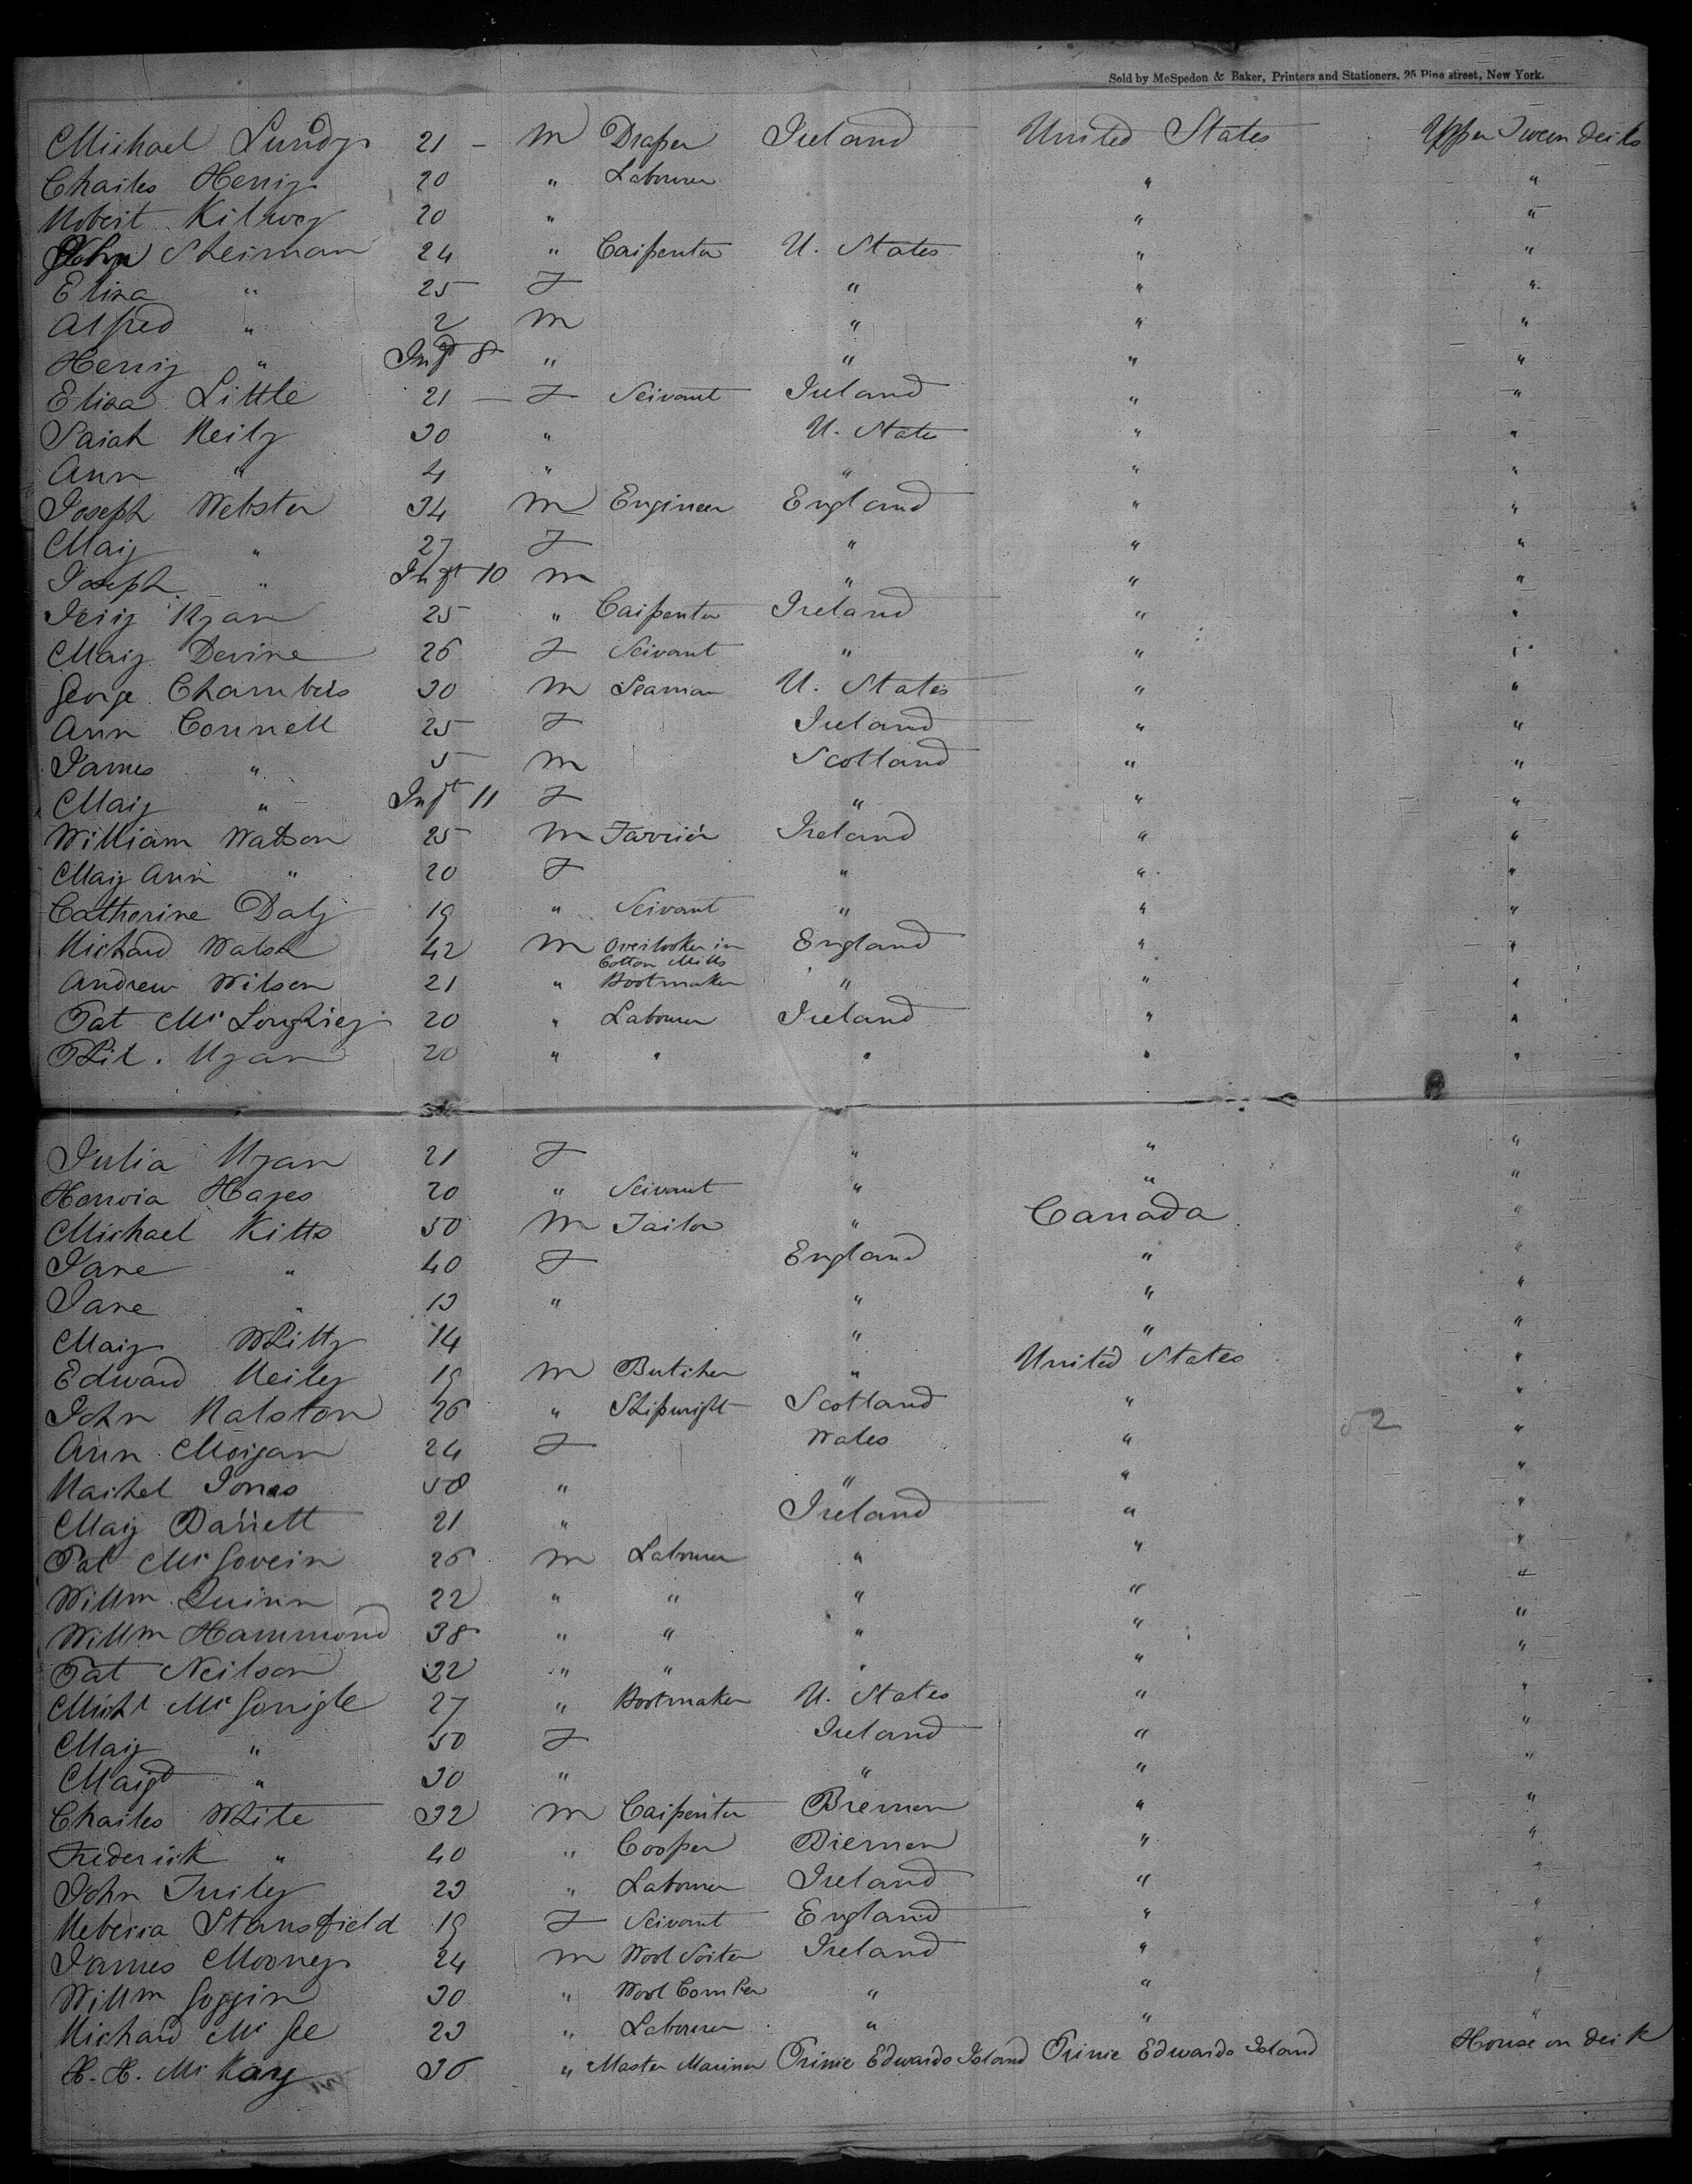 Sold by McSpedon & Baker, Printers and Stationers, 25 Pine street, New York.
Michael Lundy 21 - M Draper Ireland United States Upper Tween decks
Charles Henry 20 " Labourer " "
Robert Kilroy 20 " " "
John Sherman 24 " Carpenter U. States " "
Eliza " 25 F " " "
Alfred " 2 M " " "
Henry " Inft 8 " " " "
Eliza Little 21 - F Servant Ireland " "
Sarah Reily 30 " U. States " "
Ann " 4 " " " "
Joseph Webster 34 M Engineer England " "
Mary " 27 F " " "
Joseph " Inft 10 M " " "
Jery Ryan 25 " Carpenter Ireland " "
Mary Devine 26 F Servant " " "
George Chambers 30 M Seaman U. States " "
Ann Connell 25 F Ireland " "
James " 5 M Scotland " "
Mary " Inft 11 F " " "
William Watson 25 M Farrier Ireland " "
Mary Ann " 20 F " " "
Catherine Daly 19 " Servant " " "
Richard Walsh 42 M Overlooker in England " "
Cotton Mills
Andrew Wilson 21 " Bootmaker " " "
Pat McLoughrey 20 " Labourer Ireland " "
Phil. Ryan 20 " " " " "
Julia Ryan 21 F " " "
Honoria Hayes 20 " Servant " " "
Michael Kitts 50 M Tailor " Canada "
Jane " 40 F England " "
Jane " 13 " " " "
Mary Whitty 14 " " "
Edward Reiley 19 M Butcher " United States "
John Ralston 26 " Shipwright Scotland " "
Ann Morgan 24 F Wales " "
Rachel Jones 58 " " " "
Mary Barrett 21 " Ireland " "
Pat McGovern 26 M Labourer " " "
Willm Quinn 22 " " " " "
Willm Hammond 38 " " " " "
Pat Neilson 22 " " " " "
Michl McGonigle 27 " Bootmaker U. States " "
Mary " 50 F Ireland " "
Margt " 30 " " " "
Charles White 32 M Carpenter Bremen " "
Frederick " 40 " Cooper Bremen " "
John Turley 23 " Labourer Ireland " "
Rebecca Stansfield 19 F Servant England " "
James Mooney 24 M Wool Sorter Ireland " "
Willm Goggin 30 " Wool Comber " " "
Richard McGee 23 " Labourer " " "
H. H. McKay 36 " Master Mariner Prince Edwards Island Prince Edwards Island House on deck